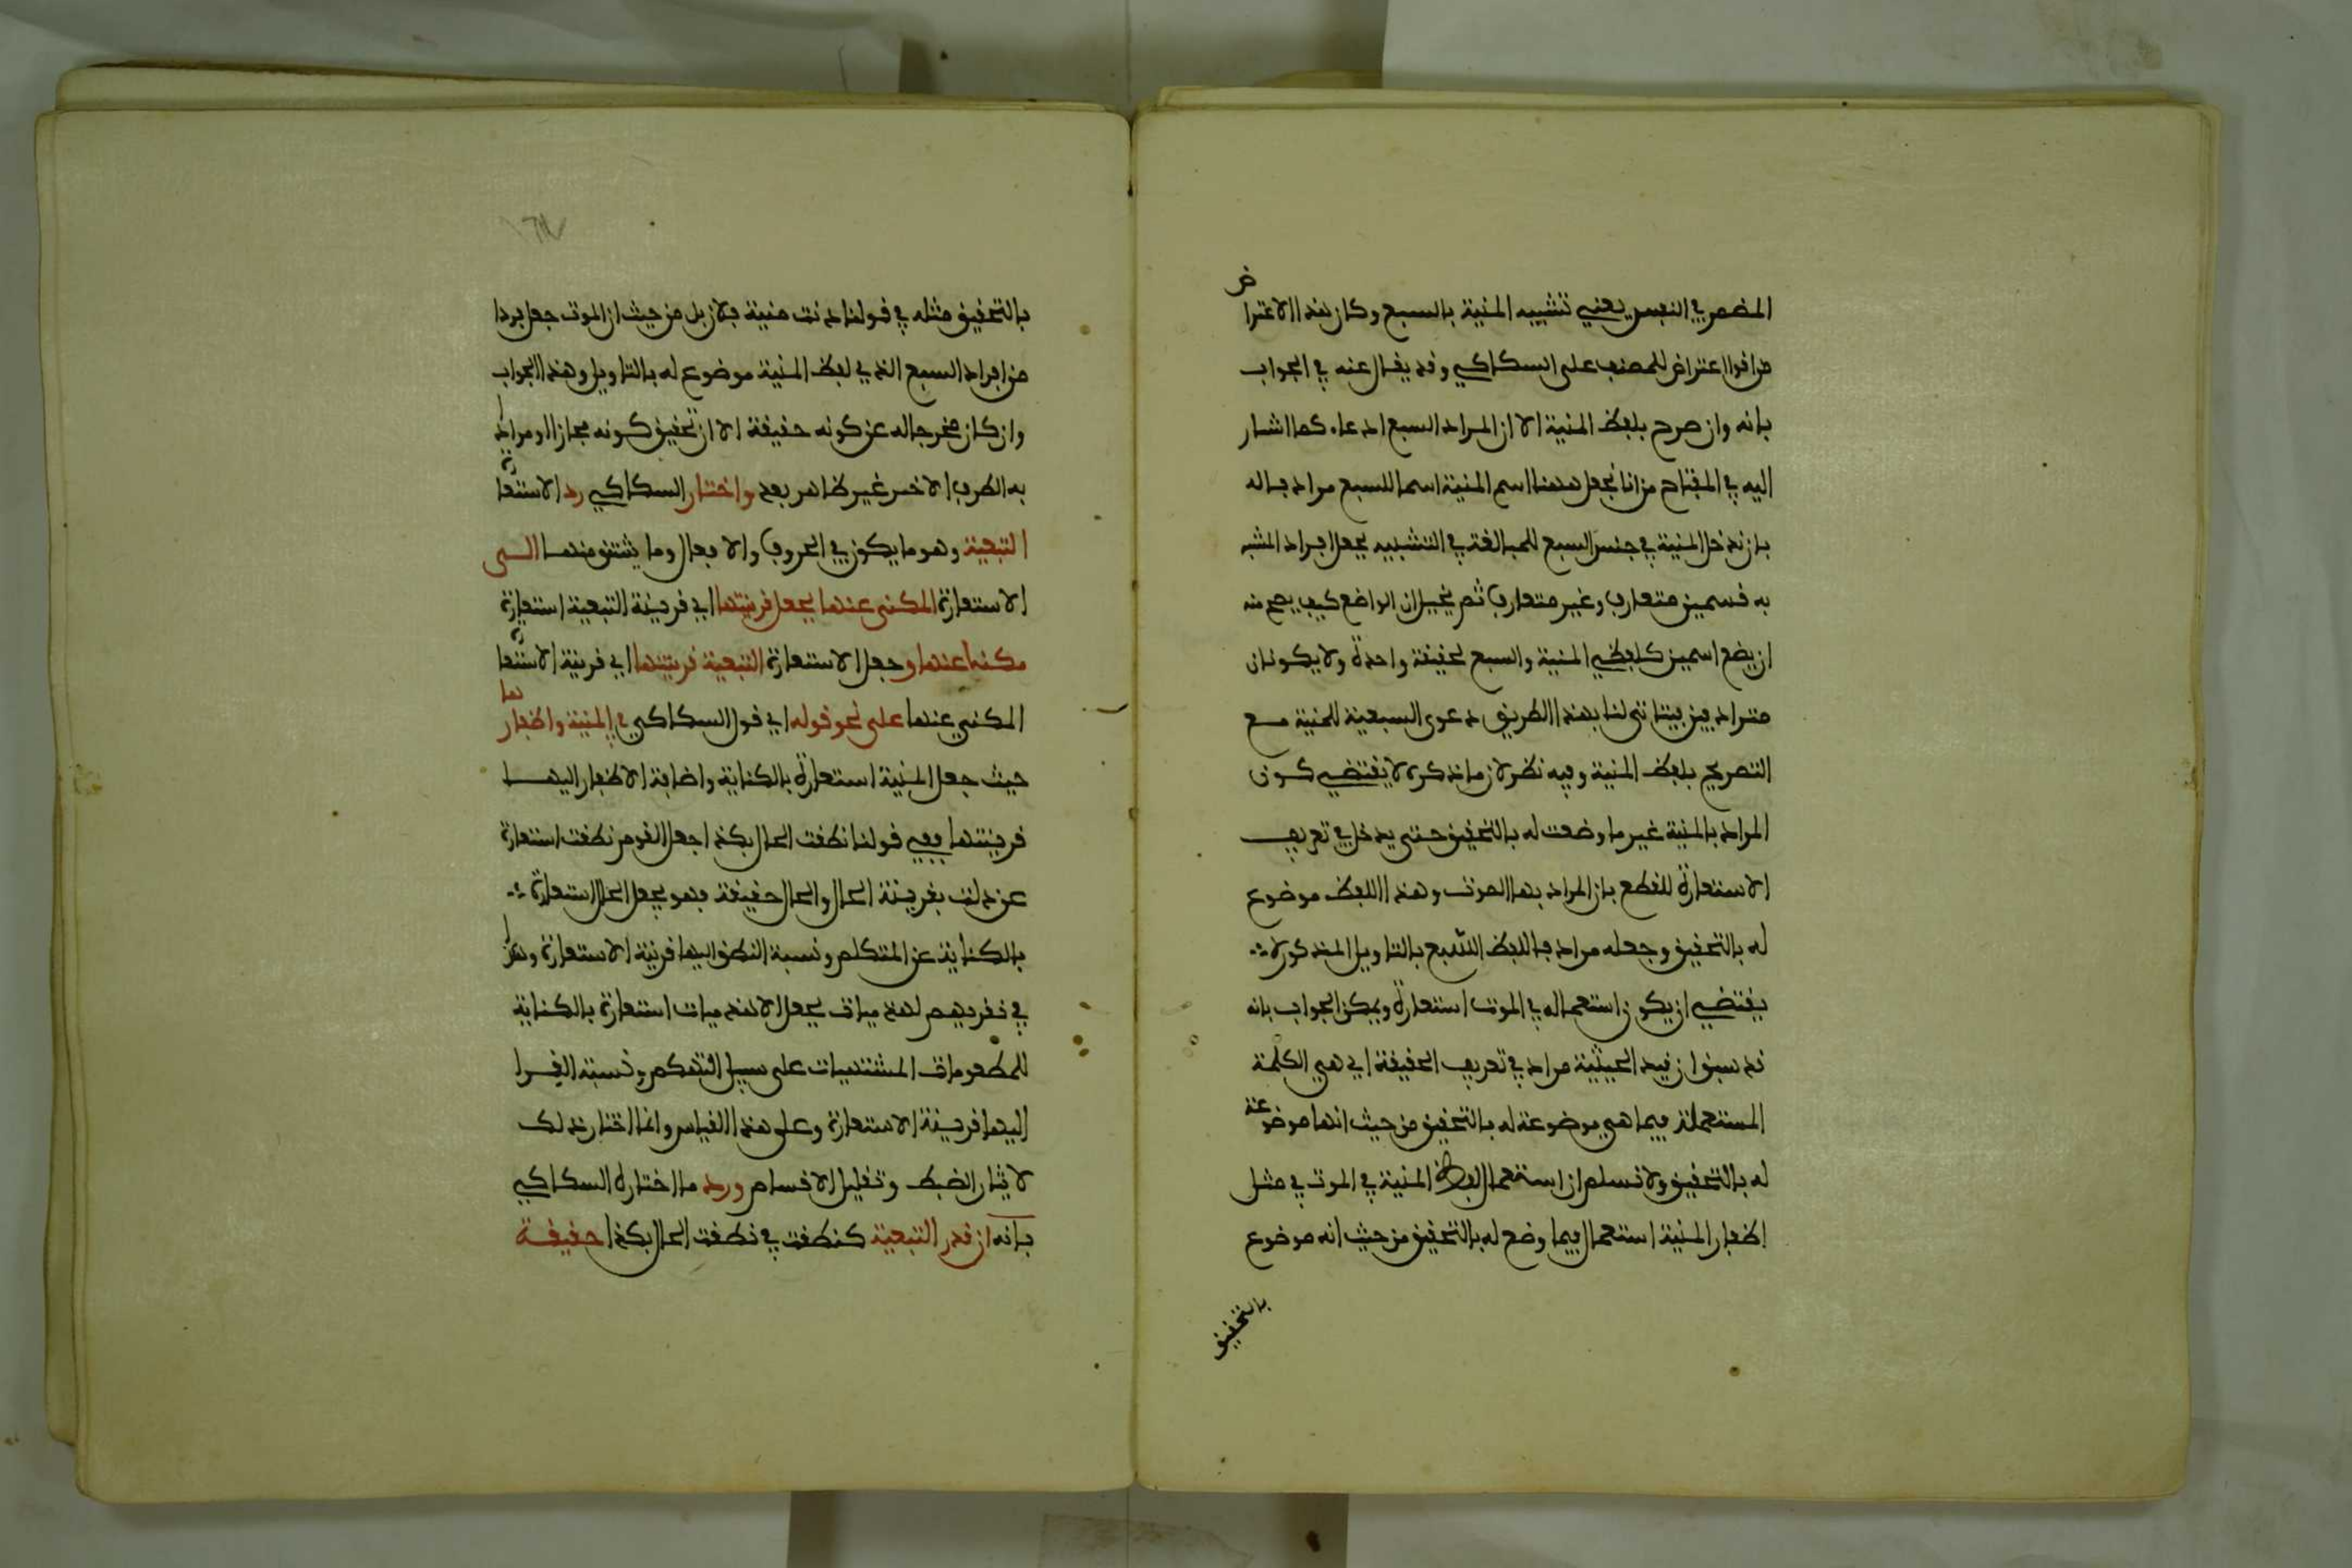 المضمر في النفس يعني تشبيه المنية بالسبع وكان هذا الاعتراض
من اقوا اعتراض للمصنف على السكاكي وقد يقال عنه في الجواب
بانه وان صرح بلفظ المنية الا ان المراد السبع ادعاء كما اشار
اليه في المفتاح من انا نجعل ههنا اسم المنية اسما للسبع مرادفا له
بان ندخل المنية في جنس السبع للمبالغة في التشبيه بجعل افراد المشبه
به قسمين متعارف وغير متعارف ثم يخيل ان الواضع كيف يصح منه
ان يضع اسمين كلفظي المنية والسبع لحقيقة واحدة ولا يكونان
مترادفين فيتاتى لنا بهذا الطريق دعوى السبعية للمنية مع
التصريح بلفظ المنية وفيه نظر لان ما ذكره لا يقتضي كون
المراد بالمنية غير ما وضعت له بالتحقيق حتى يدخل في تعريف
الاستعارة للقطع بان المراد بها الموت وهذا اللفظ موضوع
له بالتحقيق وجعله مرادفا للفظ السبع بالتاويل المذكور لا
يقتضي ان يكون استعماله في الموت استعارة ويمكن الجواب بانه
قد سبق ان قيد الحيثية مراد في تعريف الحقيقة اي هي الكلمة
المستعملة فيما هي موضوعة له بالتحقيق من حيث انها موضوعة
له بالتحقيق ولا نسلم ان استعمال لفظ المنية في الموت في مثل
اظفار المنية استعمال فيما وضع له بالتحقيق من حيث انه موضوع
بالتحقيق
بالتحقيق مثله في قولنا دنت منية فلان بل من حيث ان الموت جعل فردا
من افراد السبع الذي لفظ المنية موضوع له بالتاويل وهذا الجواب
وان كان مخرجا له عن كونه حقيقة الا ان تحقيق كونه مجازا ومرادا
به الطرف الاخر غير ظاهر بعد واختار السكاكي رد الاستعارة
التبعية وهو ما يكون في الحروف والافعال وما يشتق منها الى
الاستعارة المكنى عنها بجعل قرينتها اي قرينة التبعية استعارة
مكنيا عنها وجعل الاستعارة التبعية قرينتها اي قرينة الاستعارة
المكني عنها على نحو قوله اي قول السكاكي في المنية واظفارها
حيث جعل المنية استعارة بالكناية واضافة الاظفار اليها
قرينتها ففي قولنا نطقت الحال بكذا جعل القوم نطقت استعارة
عن دلت بقرينة الحال والحال حقيقة فهو يجعل الحال استعارة
بالكناية عن المتكلم ونسبة النطق اليها قرينة الاستعارة وهكذا
في نقريهم لهذميات يجعل الاهذميات استعارة بالكناية
للمطعومات المشتهيات على سبيل التهكم ونسبة القرا
اليها قرينة الاستعارة وعلى هذا القياس وانما اختار ذلك
لايثار الضبط وتقليل الاقسام ورد ما اختاره السكاكي
بانه ان قدر التبعية كنطقت في نطقت الحال بكذا حقيقة